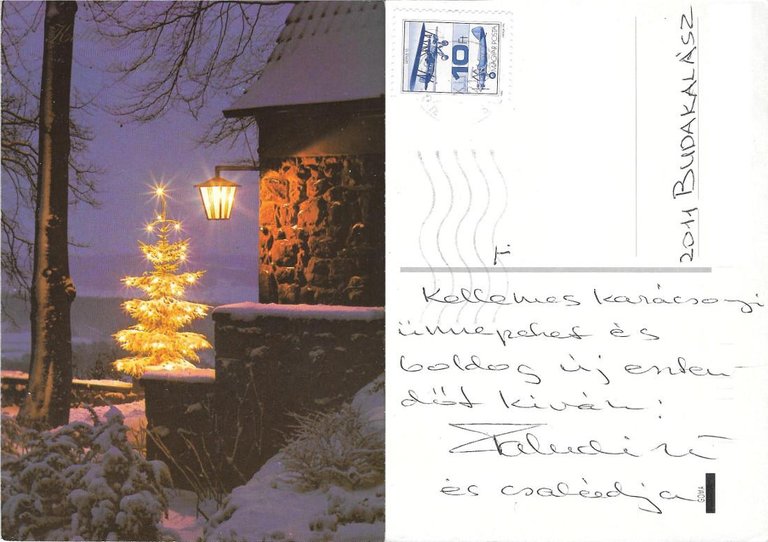 10 Ft
MAGYAR POSTA
2011 BUDAKALÁSZ
Kellemes karácsonyi
ünnepeket és
boldog új eszten-
dőt kíván:
és családja